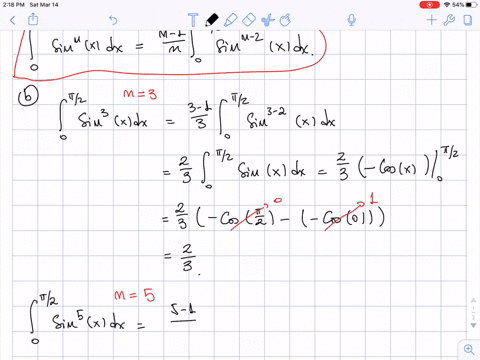 2:18 PM Sat Mar 14
54%
∫₀ Sinⁿ(x)dx = n-1/n ∫₀ Sinⁿ⁻²(x)dx.
(b)
n=3
∫₀^π/2 Sin³(x)dx = 3-1/3 ∫₀^π/2 Sin³⁻²(x)dx
= 2/3 ∫₀^π/2 Sin(x)dx = 2/3 (-Cos(x))|₀^π/2
= 2/3 (-Cos(π/2) 0 - (-Cos(0)) 1)
= 2/3.
n=5
∫₀^π/2 Sin⁵(x)dx = 5-1